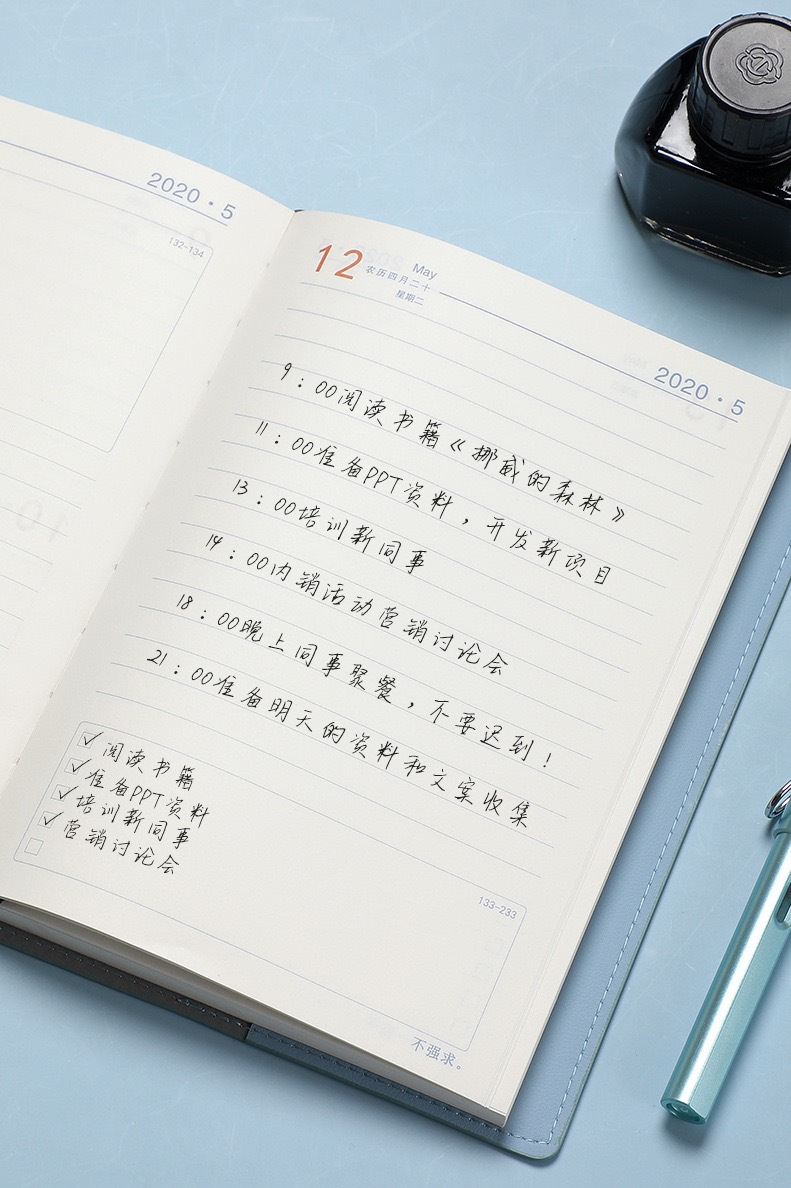 2020·5
132-134
12
May
农历四月二十
星期二
2020·5
9：00阅读书籍《挪威的森林》
11：00准备PPT资料，开发新项目
13：00培训新同事
14：00内销活动营销讨论会
18：00晚上同事聚餐，不要迟到！
21：00准备明天的资料和文案收集
阅读书籍
准备PPT资料
培训新同事
营销讨论会
133-233
不强求。